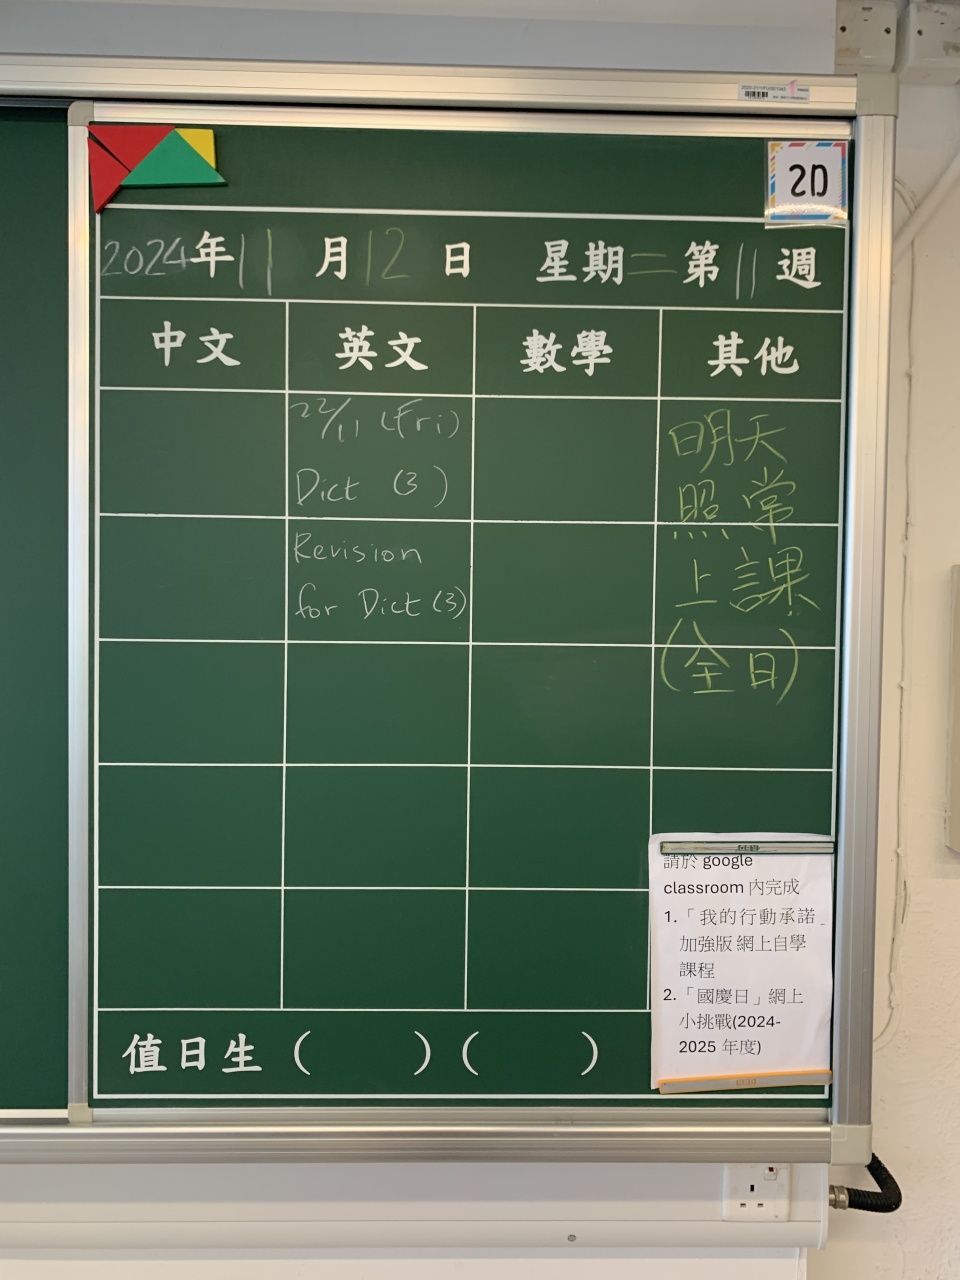 2D
2024年11月12日 星期二 第11週
中文 英文 數學 其他
22/11 (Fri)
Dict (3)
Revision
for Dict (3)
明天
照常
上課
(全日)
請於 google
classroom 內完成
1.「我的行動承諾」
加強版 網上自學
課程
2.「國慶日」網上
小挑戰(2024-
2025 年度)
值日生 ( ) ( )